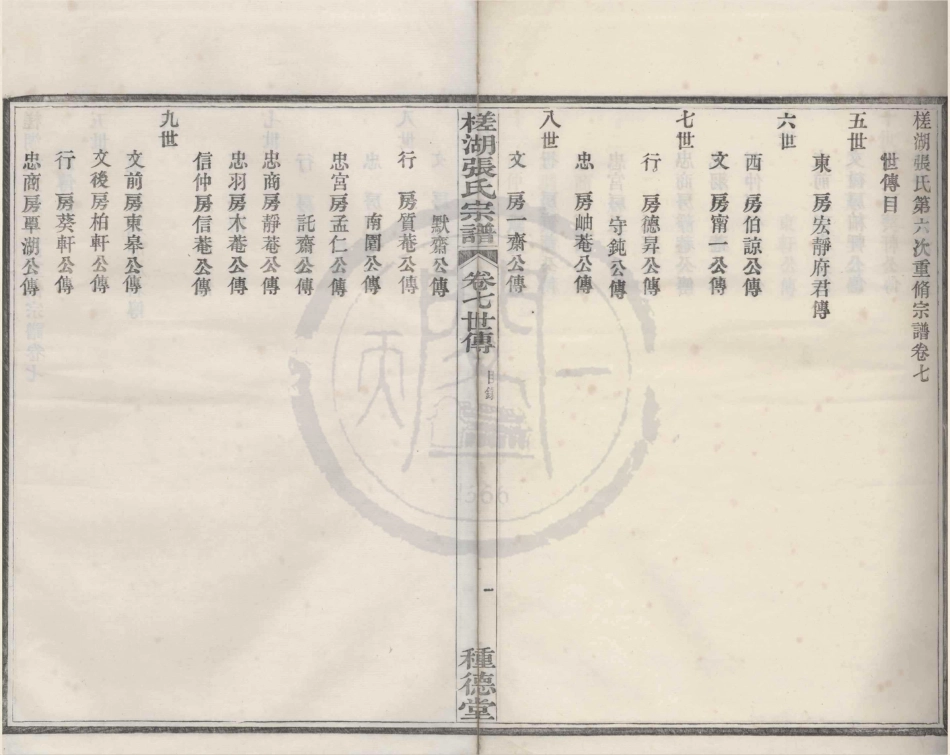 槎湖張氏第六次重脩宗譜卷七
世傳目
五世
東 房宏靜府君傳
六世
西 房伯諒公傳
文 房甯一公傳
七世
行 房德昇公傳
守鈍公傳
忠 房岫菴公傳
八世
文 房一齋公傳
槎湖張氏宗譜 卷七世傳 目錄 一 種德堂
默齋公傳
行 房質菴公傳
南園公傳
忠宮房孟仁公傳
託齋公傳
忠商房靜菴公傳
忠羽房木菴公傳
信仲房信菴公傳
九世
文前房東皋公傳
文後房柏軒公傳
行 房葵軒公傳
忠商房單湖公傳